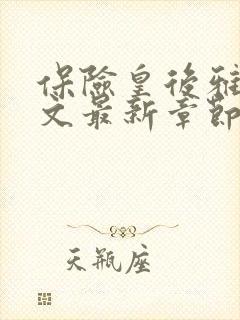 保險皇後雅
文最新章節
天瓶座